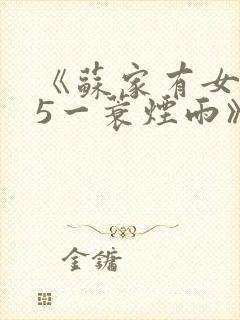 《蘇家有女
5一蓑煙雨》
金鏞